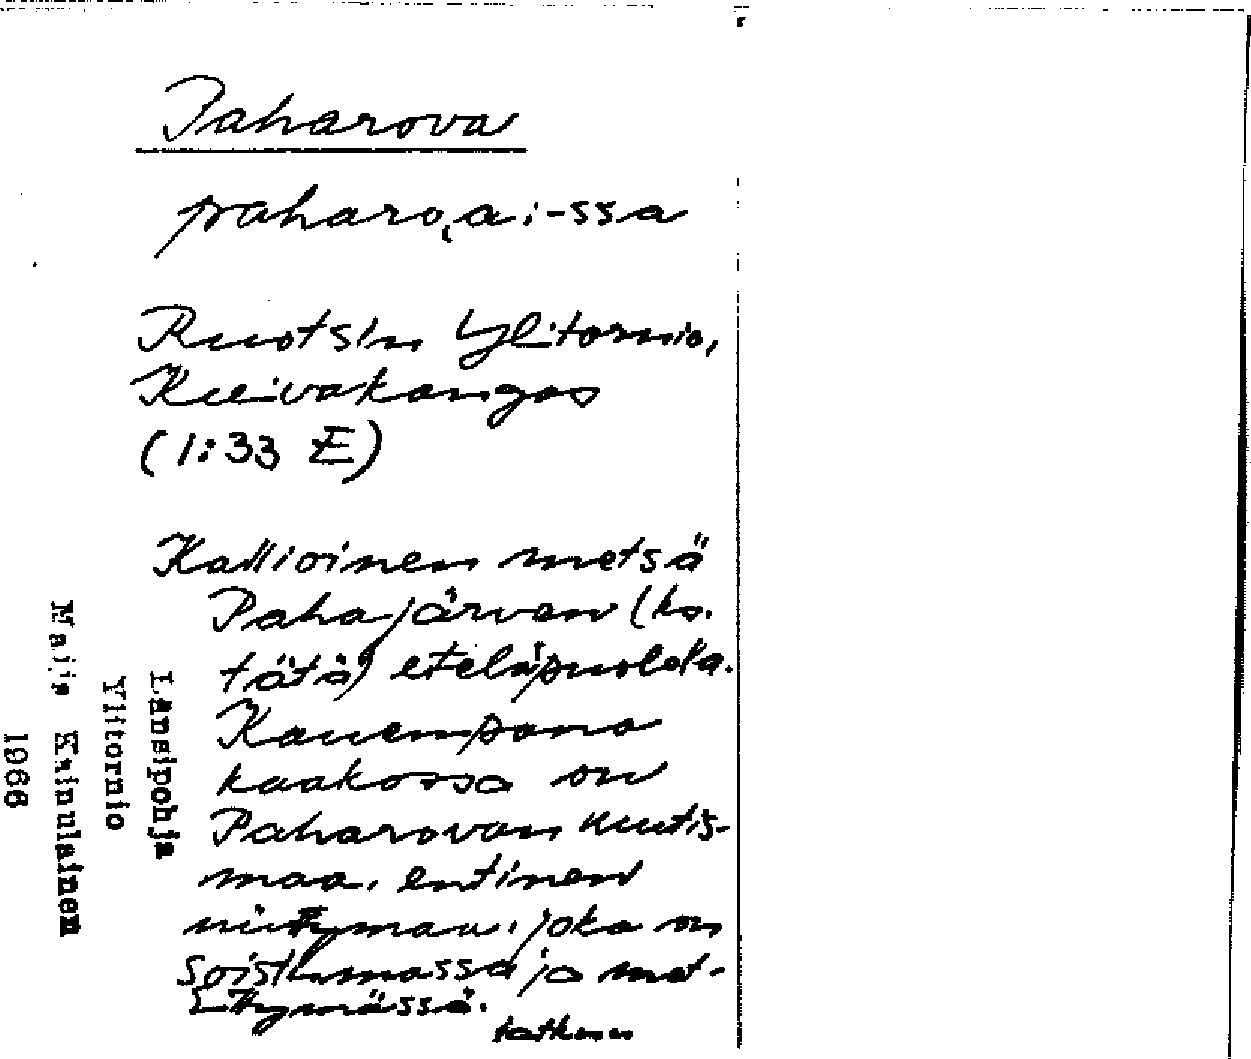 Paharova
paharo̯a: -ssa
Ruotsin Ylitornio,
Kuivakangas
(1:33 E)
Kallioinen metsä
Pahajärven (ks.
tätä) eteläpuolella.
Kauempana
kaakossa on
Paharovan uutis-
maa, entinen
niittymaa, joka on
soistumassa ja met-
sittymässä.
Länsipohja
Ylitornio
Maija Kainulainen
1966